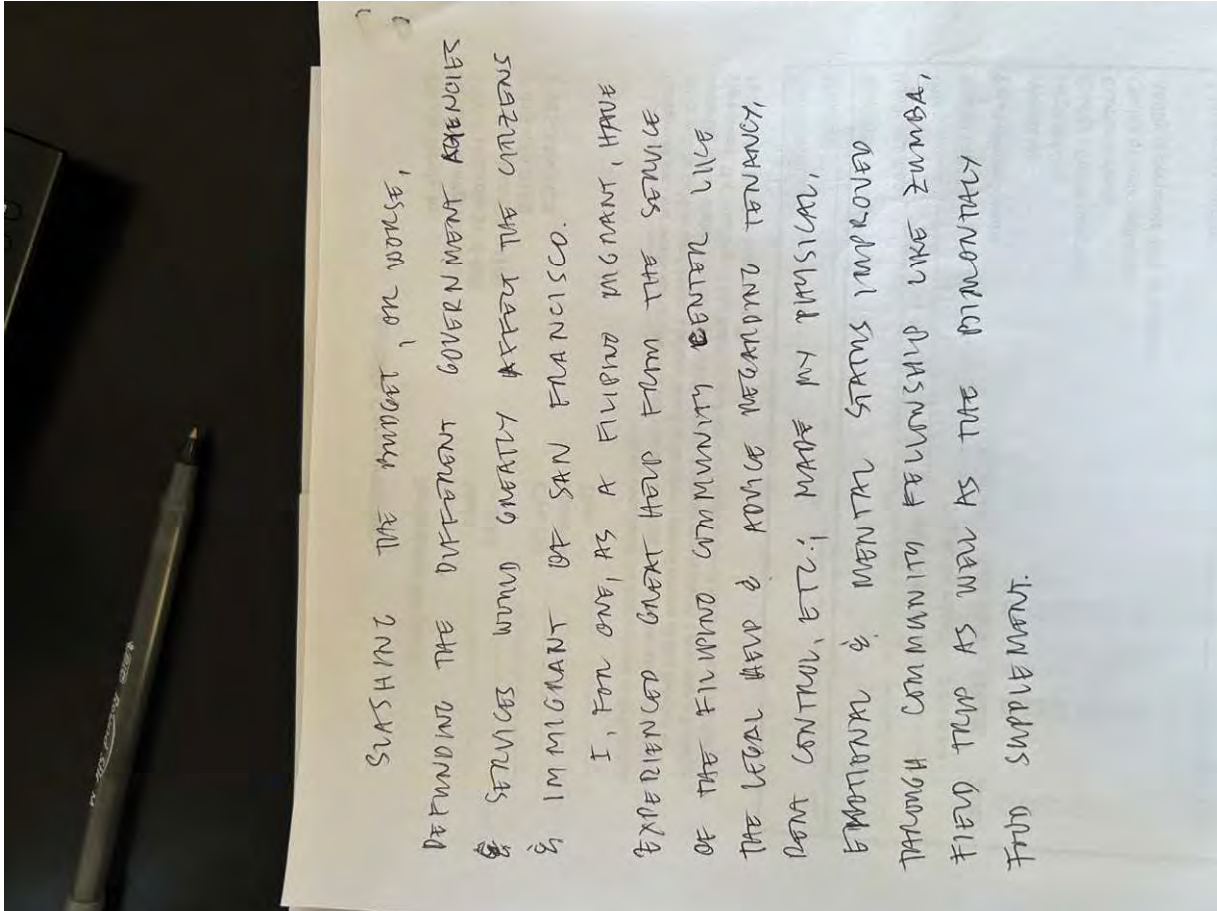 SLASHING THE BUDGET, OR WORSE,
DEFUNDING THE DIFFERENT GOVERNMENT AGENCIES
& SERVICES WOULD GREATLY AFFECT THE CITIZENS
& IMMIGRANT OF SAN FRANCISCO.
I, FOR ONE, AS A FILIPINO MIGRANT, HAVE
EXPERIENCED GREAT HELP FROM THE SERVICE
OF THE FILIPINO COMMUNITY CENTER LIKE
THE LEGAL HELP & ADVICE REGARDING TENANCY,
RENT CONTROL, ETC! MADE MY PHYSICAL,
EMOTIONAL & MENTAL STATUS IMPROVED
THROUGH COMMUNITY FELLOWSHIP LIKE ZUMBA,
FIELD TRIP AS WELL AS THE BIMONTHLY
FOOD SUPPLEMENT.